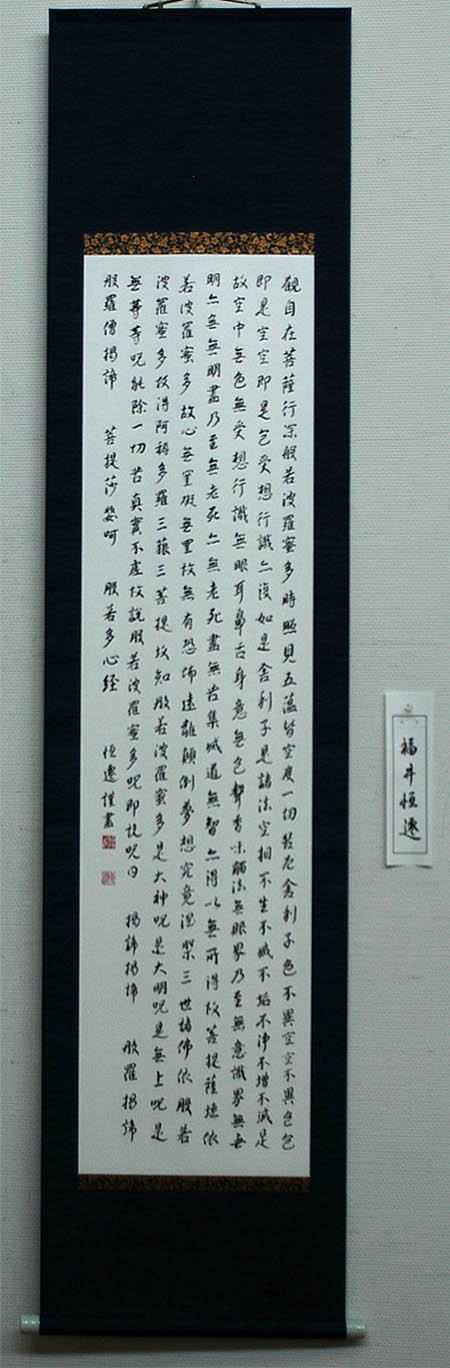 觀自在菩薩行深般若波羅蜜多時照見五蘊皆空度一切苦厄舍利子色不異空空不異色色
即是空空即是色受想行識亦復如是舍利子是諸法空相不生不滅不垢不淨不增不減是
故空中無色無受想行識無眼耳鼻舌身意無色聲香味觸法無眼界乃至無意識界無無
明亦無無明盡乃至無老死亦無老死盡無苦集滅道無智亦得以無所得故菩提薩埵依
若波羅蜜多故心無罣礙無罣故無有恐怖遠離顛倒夢想究竟涅槃三世諸佛依般若
波羅蜜多故得阿耨多羅三藐三菩提故知般若波羅蜜多是大神呪是大明呪是無上呪是
無等等呪能除一切苦真實不虛故說般若波羅蜜多呪即說呪曰 揭諦揭諦 般羅揭諦
般羅僧揭諦 菩提莎婆呵 般若多心経 恒遼謹書
福井恒遼